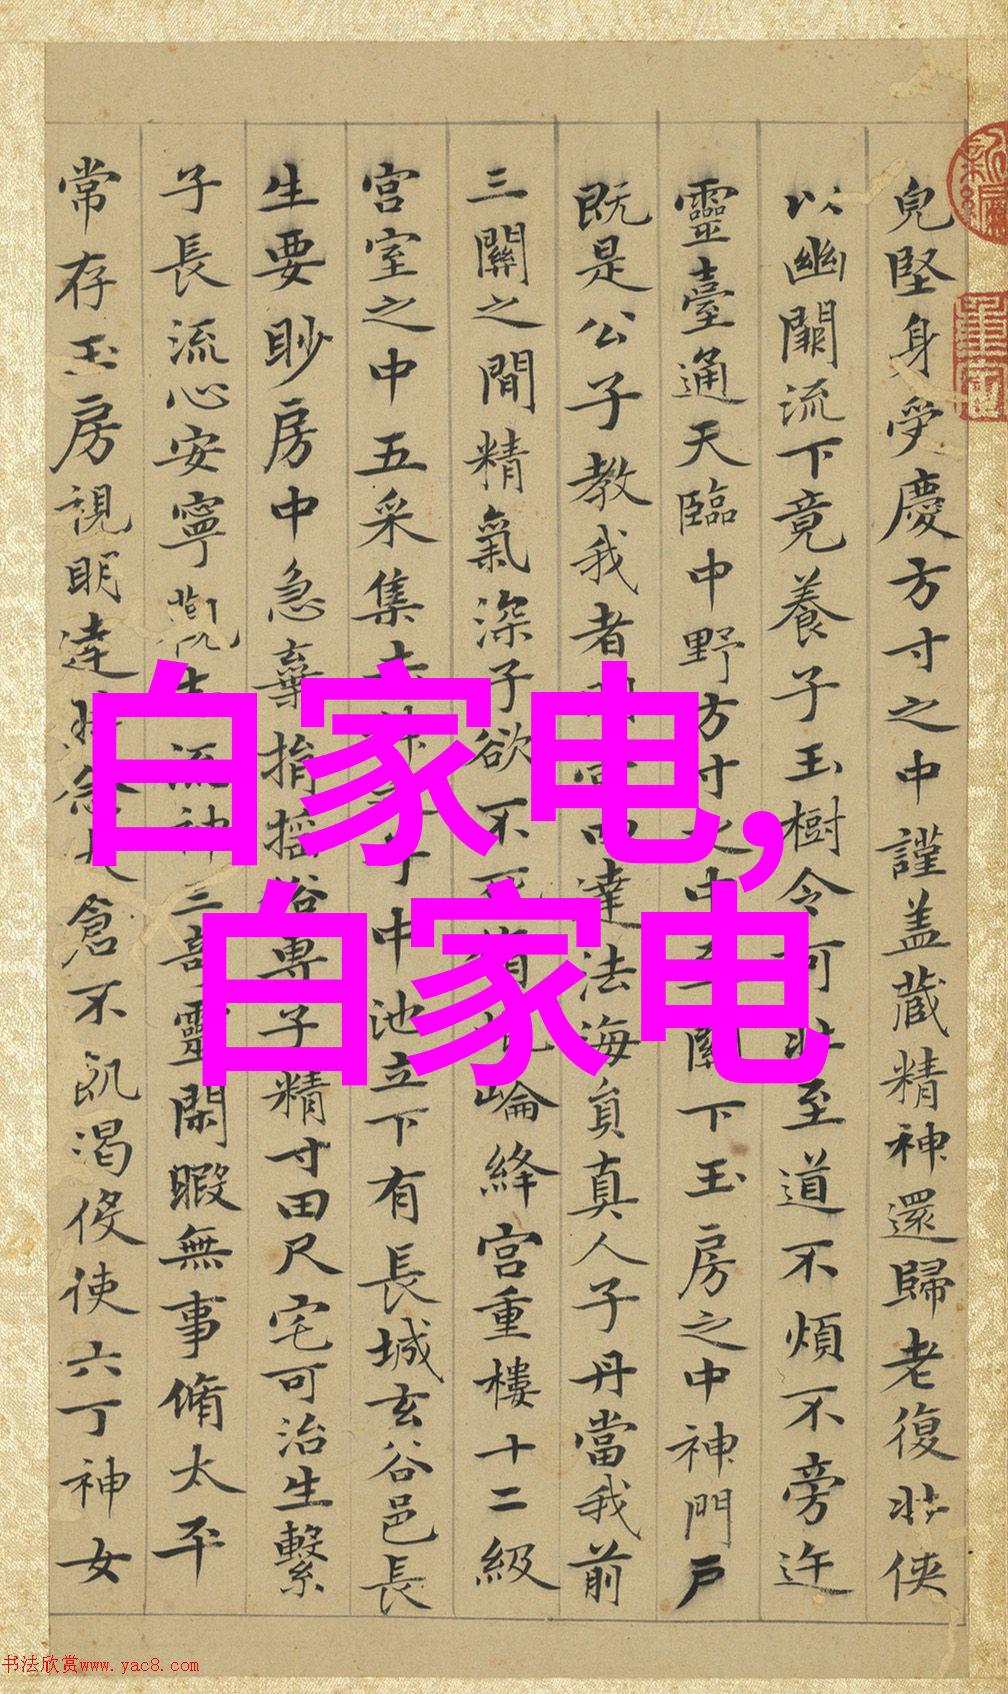 兒堅身受慶方寸之中謹盖蔵精神還歸老復壯侠
以幽闕流下竟養子玉樹令可壯至道不煩不旁迕
靈臺通天臨中野方寸之中至關下玉房之中神門戶
既是公子教我者四達法海員真人子丹當我前
三關之間精氣深子欲不死崘絳宮重樓十二級
宮室之中五采集赤神子中池立下有長城玄谷邑長
生要眇房中急棄捐揺俗專子精寸田尺宅可治生繫
子長流心安寧觀志流神三奇靈閑暇無事脩太平
常存玉房視明達時念大倉不飢渴役使六丁神女
白家电,
白家电
书法欣赏www.yac8.com